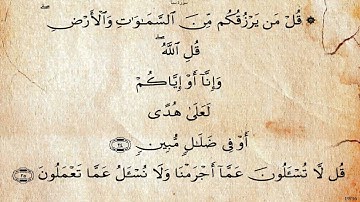 ۞ قُلۡ مَن يَرۡزُقُكُم مِّنَ ٱلسَّمَٰوَٰتِ وَٱلۡأَرۡضِۖ
قُلِ ٱللَّهُۖ
وَإِنَّآ أَوۡ إِيَّاكُمۡ
لَعَلَىٰ هُدًى
أَوۡ فِي ضَلَٰلٖ مُّبِينٖ ٢٤
قُل لَّا تُسۡـَٔلُونَ عَمَّآ أَجۡرَمۡنَا وَلَا نُسۡـَٔلُ عَمَّا تَعۡمَلُونَ ٢٥